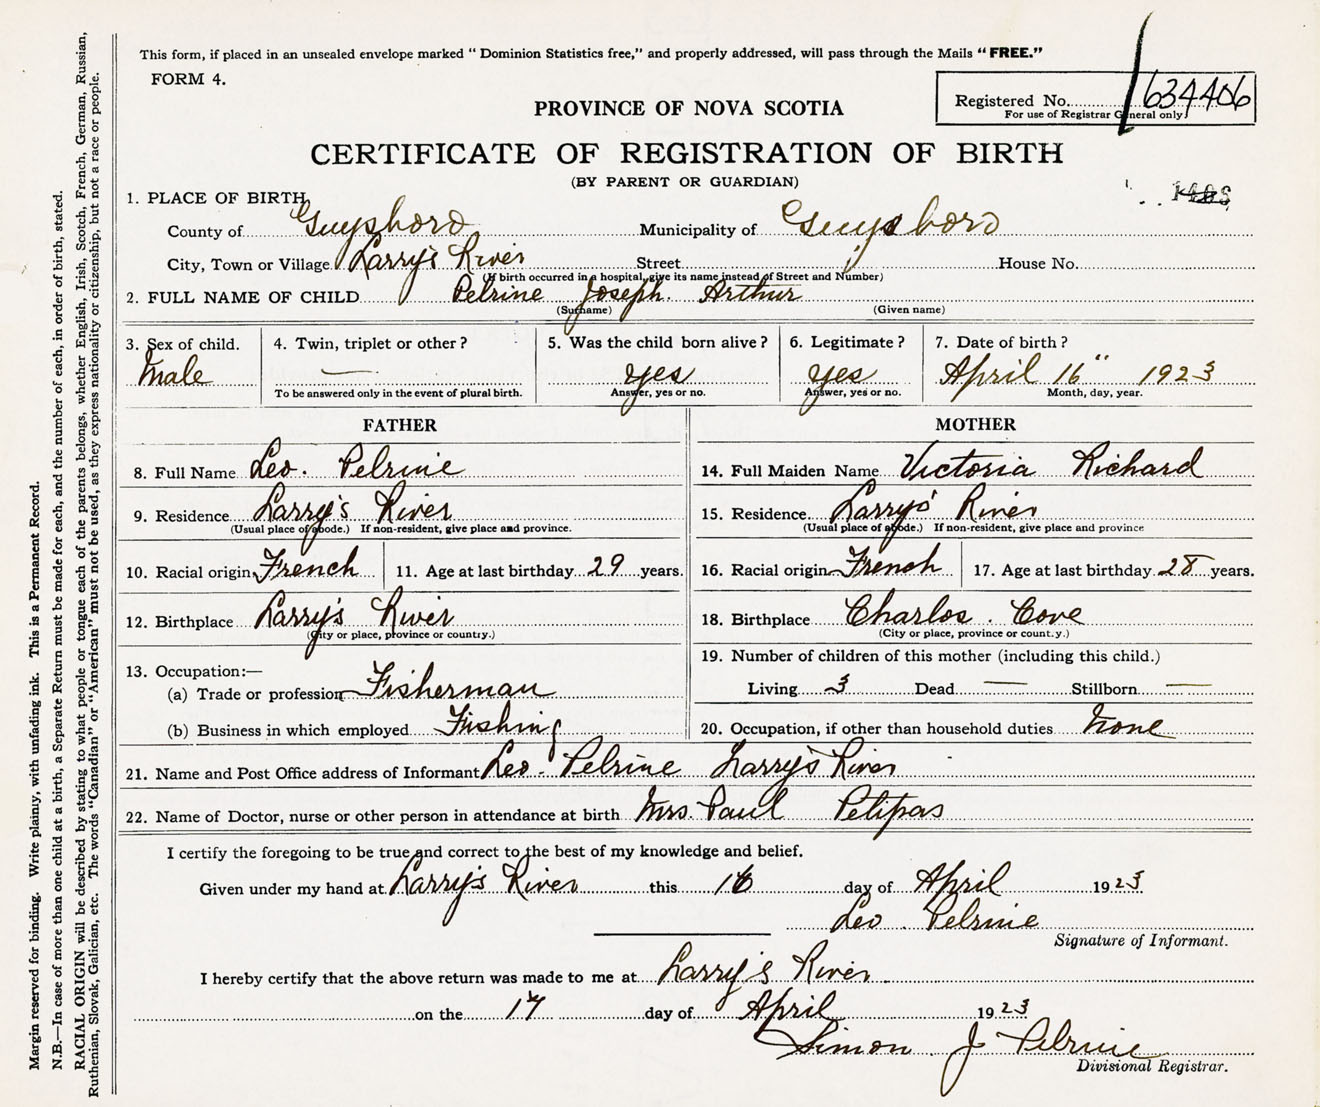 This form, if placed in an unsealed envelope marked "Dominion Statistics free," and properly addressed, will pass through the Mails "FREE."
FORM 4.
Registered No. 634406
For use of Registrar General only
PROVINCE OF NOVA SCOTIA
CERTIFICATE OF REGISTRATION OF BIRTH
(BY PARENT OR GUARDIAN)
1. PLACE OF BIRTH
County of Guysboro Municipality of Guysboro
City, Town or Village Larry's River Street House No.
(If birth occurred in a hospital, give its name instead of Street and Number)
2. FULL NAME OF CHILD Pelrine Joseph. Arthur
(Surname) (Given name)
3. Sex of child. 4. Twin, triplet or other? 5. Was the child born alive? 6. Legitimate? 7. Date of birth?
Male — yes yes April 16" 1923
To be answered only in the event of plural birth. Answer, yes or no. Answer, yes or no. Month, day, year.
FATHER MOTHER
8. Full Name Leo. Pelrine 14. Full Maiden Name Victoria Richard
9. Residence Larry's River 15. Residence Larrys' River
(Usual place of abode.) If non-resident, give place and province. (Usual place of abode.) If non-resident, give place and province
10. Racial origin French 11. Age at last birthday 29 years. 16. Racial origin French 17. Age at last birthday 28 years.
12. Birthplace Larry's River 18. Birthplace Charlos. Cove
(City or place, province or country.) (City or place, province or count.y.)
19. Number of children of this mother (including this child.)
13. Occupation:—
(a) Trade or profession Fisherman Living 3 Dead — Stillborn —
(b) Business in which employed Fishing 20. Occupation, if other than household duties None
21. Name and Post Office address of Informant Leo. Pelrine Larry's River
22. Name of Doctor, nurse or other person in attendance at birth Mrs. Paul Petipas
I certify the foregoing to be true and correct to the best of my knowledge and belief.
Given under my hand at Larry's River this 16 day of April 1923
Leo. Pelrine
Signature of Informant.
I hereby certify that the above return was made to me at Larry's River
on the 17 day of April 1923
Simon J Pelrine
Divisional Registrar.
Margin reserved for binding. Write plainly, with unfading ink. This is a Permanent Record.
N.B.—In case of more than one child at a birth, a Separate Return must be made for each, and the number of each, in order of birth, stated.
RACIAL ORIGIN will be described by stating to what people or tongue each of the parents belongs, whether English, Irish, Scotch, French, German, Russian,
Ruthenian, Slovak, Galician, etc. The words "Canadian" or "American" must not be used, as they express nationality or citizenship, but not a race or people.